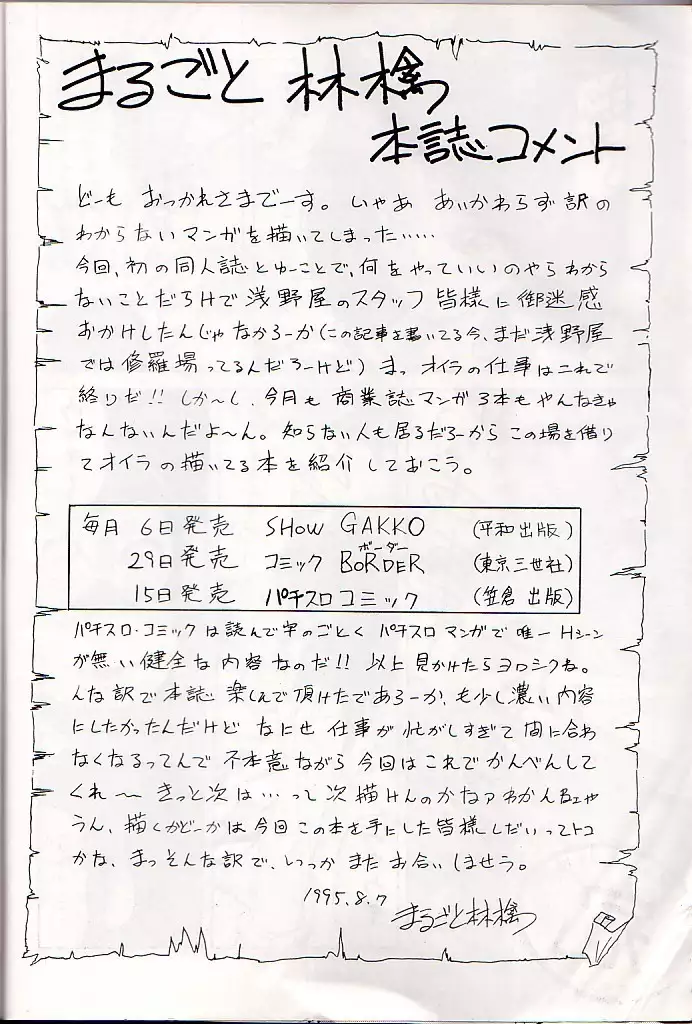 まるごと 林檎
本誌コメント
どーも おっかれさまでーす。いやあ あいかわらず訳の
わからないマンガを描いてしまった……
今回、初の同人誌とゆーことで、何をやっていいのやらわから
ないことだらけで浅野屋のスタッフ皆様に御迷惑
おかけしたんじゃなかろーか(この記事を書いてる今、まだ浅野屋
では修羅場ってるんだろーけど)まっ オイラの仕事はこれで
終りだ!! しか〜し、今月も 商業誌マンガ3本もやんなきゃ
なんないんだよ〜ん。知らない人も居るだろーからこの場を借り
てオイラの描いてる本を紹介しておこう。
毎月 6日発売 SHOW GAKKO (平和出版)
29日発売 コミック BORDER ボーダー (東京三世社)
15日発売 パチスロコミック (笠倉出版)
パチスロ・コミックは読んで字のごとく パチスロマンガで唯一Hシーン
が無い健全な内容なのだ!! 以上見かけたらヨロシクね。
んな訳で本誌 楽しんで頂けたであろーか、も少し濃い内容
にしたかったんだけど なにせ 仕事が忙がしすぎて間に合わ
なくなるってんで 不本意ながら今回はこれでかんべんして
くれ〜 きっと次は…って次描けんのかなァわかんねェや
うん、描くかどーかは今回この本を手にした皆様しだいってトコ
かな、まっそんな訳で、いつか またお会いしませう。
1995.8.7
まるごと林檎